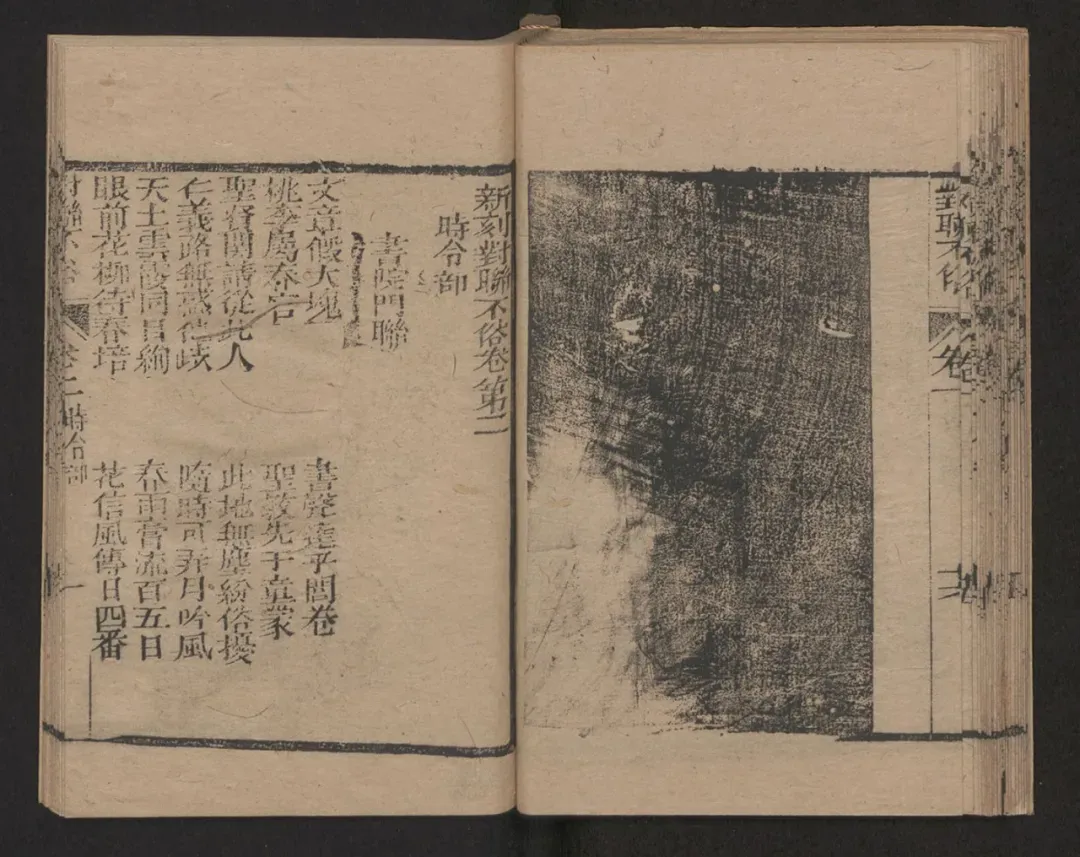 新刻對聯不俗卷第二
時令部
書院門聯
文章假大塊
書聲達乎閭巷
桃李屬春官
聖教先于童蒙
聖賢関請從此入
此地無塵紛俗擾
仁義路無惑他歧
隨時可弄月吟風
天上雲霞同目絢
春雨膏流百五日
眼前花柳待春培
花信風傳廿四番
對聯不俗
卷二
時令部
一
對聯不俗
卷一